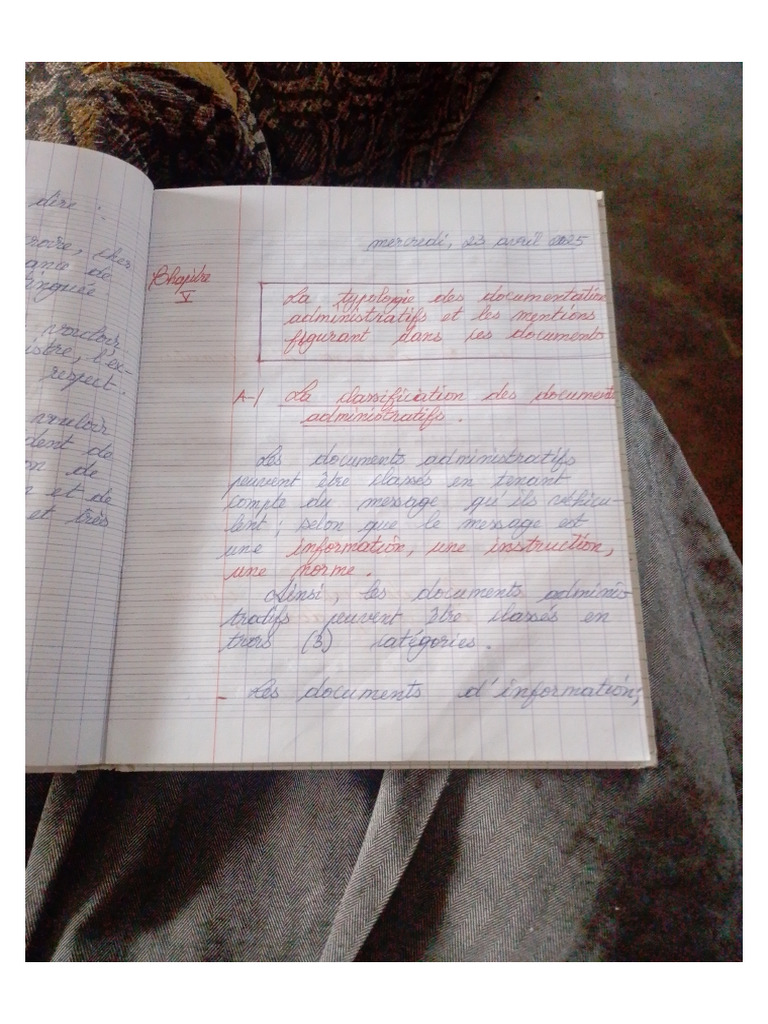 dire :
cher
ance de
vouloir
istre, l'ex-
respect.
vouloir
dent de
on de
n et de
et très
mercredi, 23 avril 2025
Chapitre
V
La typologie des documentation
administratifs et les mentions
figurant dans ces documents
A-/ La classification des documents
administratifs.
Les documents administratifs
peuvent être classés en tenant
compte du message qu'ils véhicu-
lent ; selon que le message est
une information, une instruction,
une norme.
Ainsi, les documents adminis
tratifs peuvent être classés en
trois (3) catégories.
- Les documents d'information;